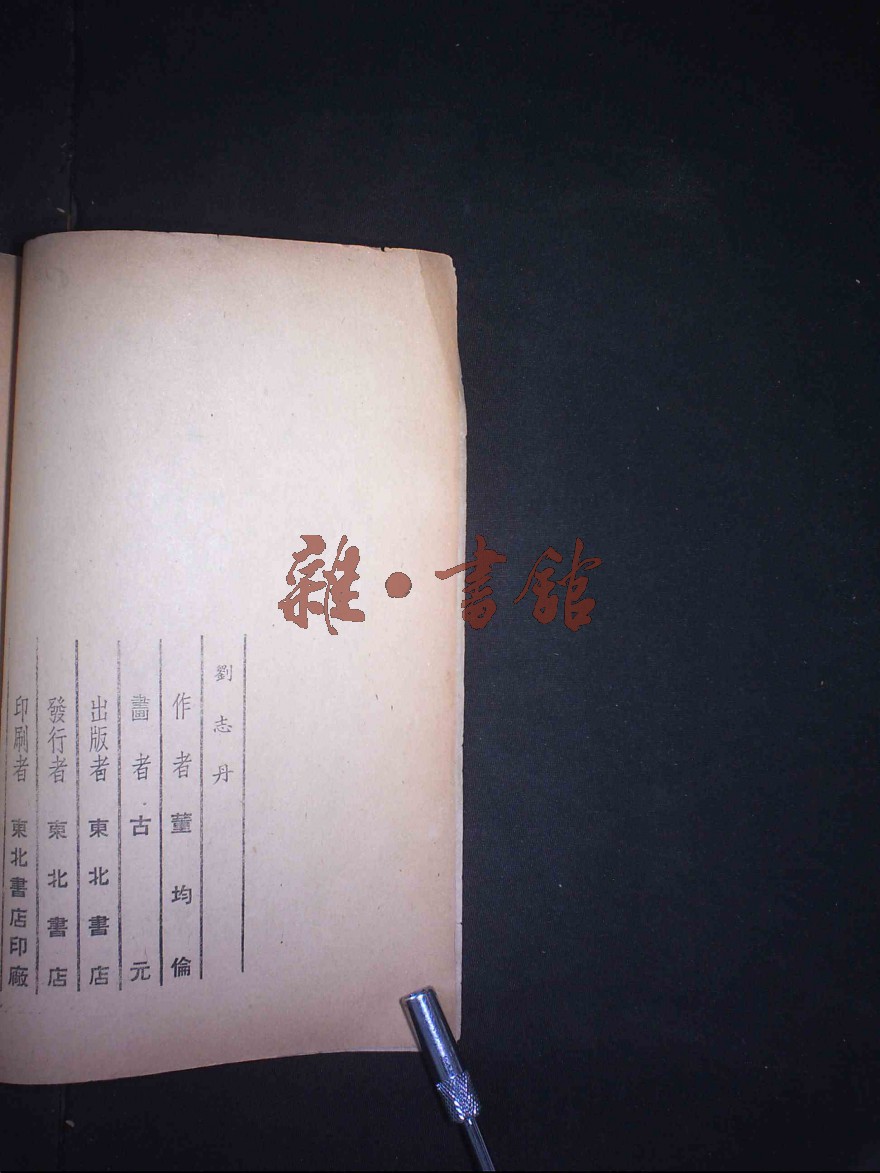 劉志丹
作者 董均倫
畫者 古元
出版者 東北書店
發行者 東北書店
印刷者 東北書店印廠
雜·書館